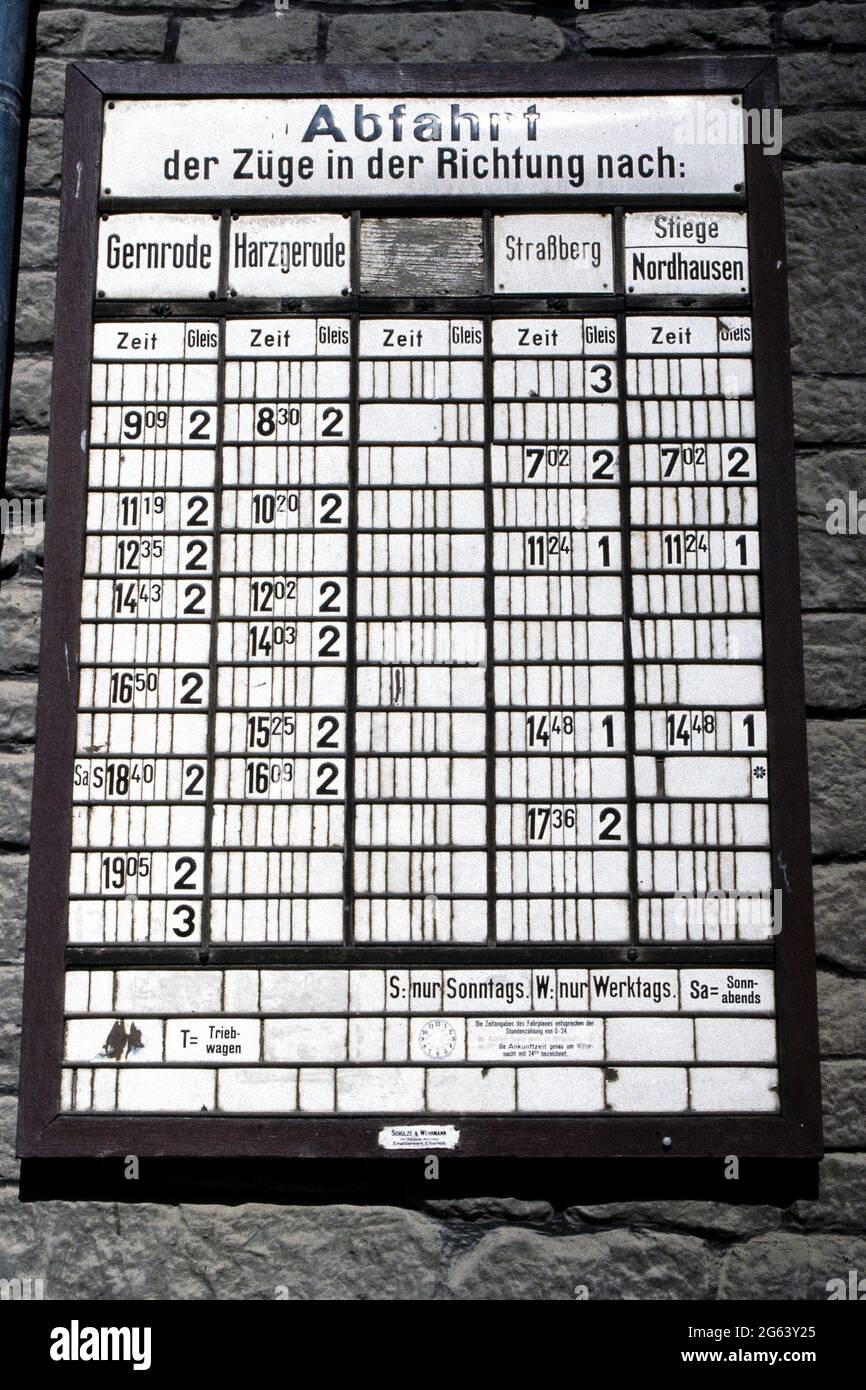 Abfahrt
der Züge in der Richtung nach:
Gernrode Harzgerode Straßberg Stiege
Nordhausen
Zeit Gleis Zeit Gleis Zeit Gleis Zeit Gleis Zeit Gleis
3
9 09 2 8 30 2
7 02 2 7 02 2
11 19 2 10 20 2
12 35 2 11 24 1 11 24 1
14 43 2 12 02 2
14 03 2
16 50 2
15 25 2 14 48 1 14 48 1
Sa S 18 40 2 16 09 2 *
17 36 2
19 05 2
3
S: nur Sonntags. W: nur Werktags. Sa= Sonn-
abends
T= Trieb-
wagen
Die Zeitangaben des Fahrplanes entsprechen der
Stundenzählung von 0-24.
die Ankunftzeit genau um Mitter-
nacht mit 24 00 bezeichnet.
SCHULZE & WEHRMANN
Emaillierwerk, Elberfeld
alamy
Image ID: 2G63Y25
www.alamy.com